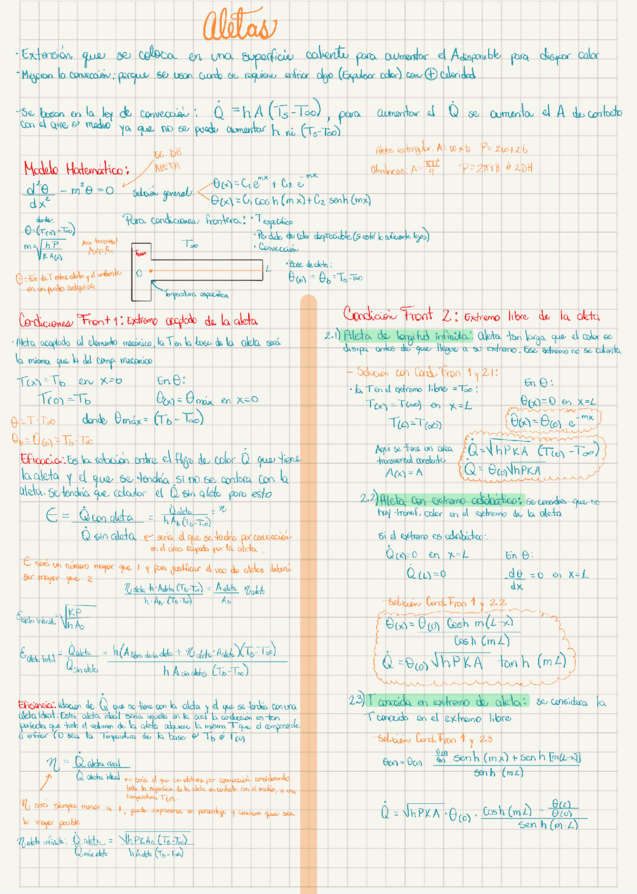 Aletas
· Extensión que se coloca en una superficie caliente para aumentar el A disponible para disipar calor
· Mejoran la convección; porque se usan cuando se requiere enfriar algo (Expulsar calor) con ⊕ calidad
· Se basan en la ley de convección: Q̇ = hA(Ts-T∞), para aumentar el Q̇ se aumenta el A de contacto
con el aire o medio ya que no se puede aumentar h ni (Ts-T∞)
Modelo Matemático:
d²θ/dx² - m²θ = 0
Solución general
θ(x) = C₁e^mx + C₂e^-mx
θ(x) = C₁ cosh(mx) + C₂ senh(mx)
donde:
θ = (T(x) - T∞)
m = √(hP/KA(x))
Para condiciones frontera: · T específica
· Perdida de calor despreciable (si está lo suficiente lejos)
· Convección
T∞
0
L
· Base de aleta:
θ(0) = θb = Tb - T∞
Temperatura específica
Condiciones Front 1: Extremo acoplado de la aleta
· Aleta acoplada al elemento mecánico, la T en la base de la aleta será
la misma que la del comp. mecánico
T(x) = Tb en x=0 En θ:
T(0) = Tb θ(x) = θmáx en x=0
θ = T - T∞ donde θmáx = (Tb - T∞)
θb = θ(0) = Tb - T∞
Eficacia: Es la relación entre el flujo de calor Q̇ que tiene
la aleta y el que se tendría si no se contara con la
aleta. Se tendría que calcular el Q̇ sin aleta para esto
Є = Q̇ con aleta / Q̇ sin aleta = Q̇aleta / hAb(Tb-T∞)
sería el que se tendría por convección
en el área ocupada por la aleta.
Є será un número mayor que 1 y para justificar el uso de aletas deberá
ser mayor que 2
ηaleta h·Aaleta(Tb-T∞) / h·Ab(Tb-T∞) = Aaleta/Ab ηaleta
Єaleta total = Q̇aleta / Q̇sin aleta = h(A + ηaleta·Aaleta)(Tb-T∞) / hA sin aleta (Tb-T∞)
Eficiencia: relación de Q̇ que se tiene con la aleta y el que se tendría con una
aleta ideal. Esta aleta ideal sería aquella en la cual la conducción es tan
perfecta que todo el volumen de la aleta adquiere la misma T que el componente
a enfriar o sea la Temperatura de la base o Tb o T(0)
η = Q̇ aleta real / Q̇ aleta ideal
η será siempre menor a 1, puede expresarse en porcentaje y conviene que sea
lo mayor posible
Q̇aleta / Q̇máx aleta = √hPKAc (Tb-T∞) / hAaleta(Tb-T∞)
Condición Front 2: Extremo libre de la aleta
2.1) Aleta de longitud infinita: Aleta tan larga que el calor se
disipa antes de que llegue a su extremo. Ese extremo no se calienta
- Solución con Cond. Fron 1 y 2.1:
· La T en el extremo libre = T∞: En θ:
T(x) = T(∞) en x=L θ(x) = 0 en x=L
T(L) = T(∞) θ(x) = θ(0) e^-mx
Aquí se tiene un área
transversal constante
A(x) = A
Q̇ = √hPKA (T(0) - T∞)
Q̇ = θ(0)√hPKA
2.2) Aleta con extremo adiabático: se considera que no
hay transf. calor en el extremo de la aleta
Si el extremo es adiabático:
Q̇(x) = 0 en x=L En θ:
Q̇(L) = 0 dθ/dx = 0 en x=L
- Solución Cond. Fron 1 y 2.2
θ(x) = θ(0) cosh m(L-x) / cosh(mL)
Q̇ = θ(0)√hPKA tanh(mL)
2.3) T conocida en extremo de aleta: se considera la
T conocida en el extremo libre
- Solución Cond. Fron 1 y 2.3
θ(x) = θ(0) θ(L)/θ(0) senh(mx) + senh[m(L-x)] / senh(mL)
Q̇ = √hPKA · θ(0) · cosh(mL) - θ(L)/θ(0) / senh(m·L)